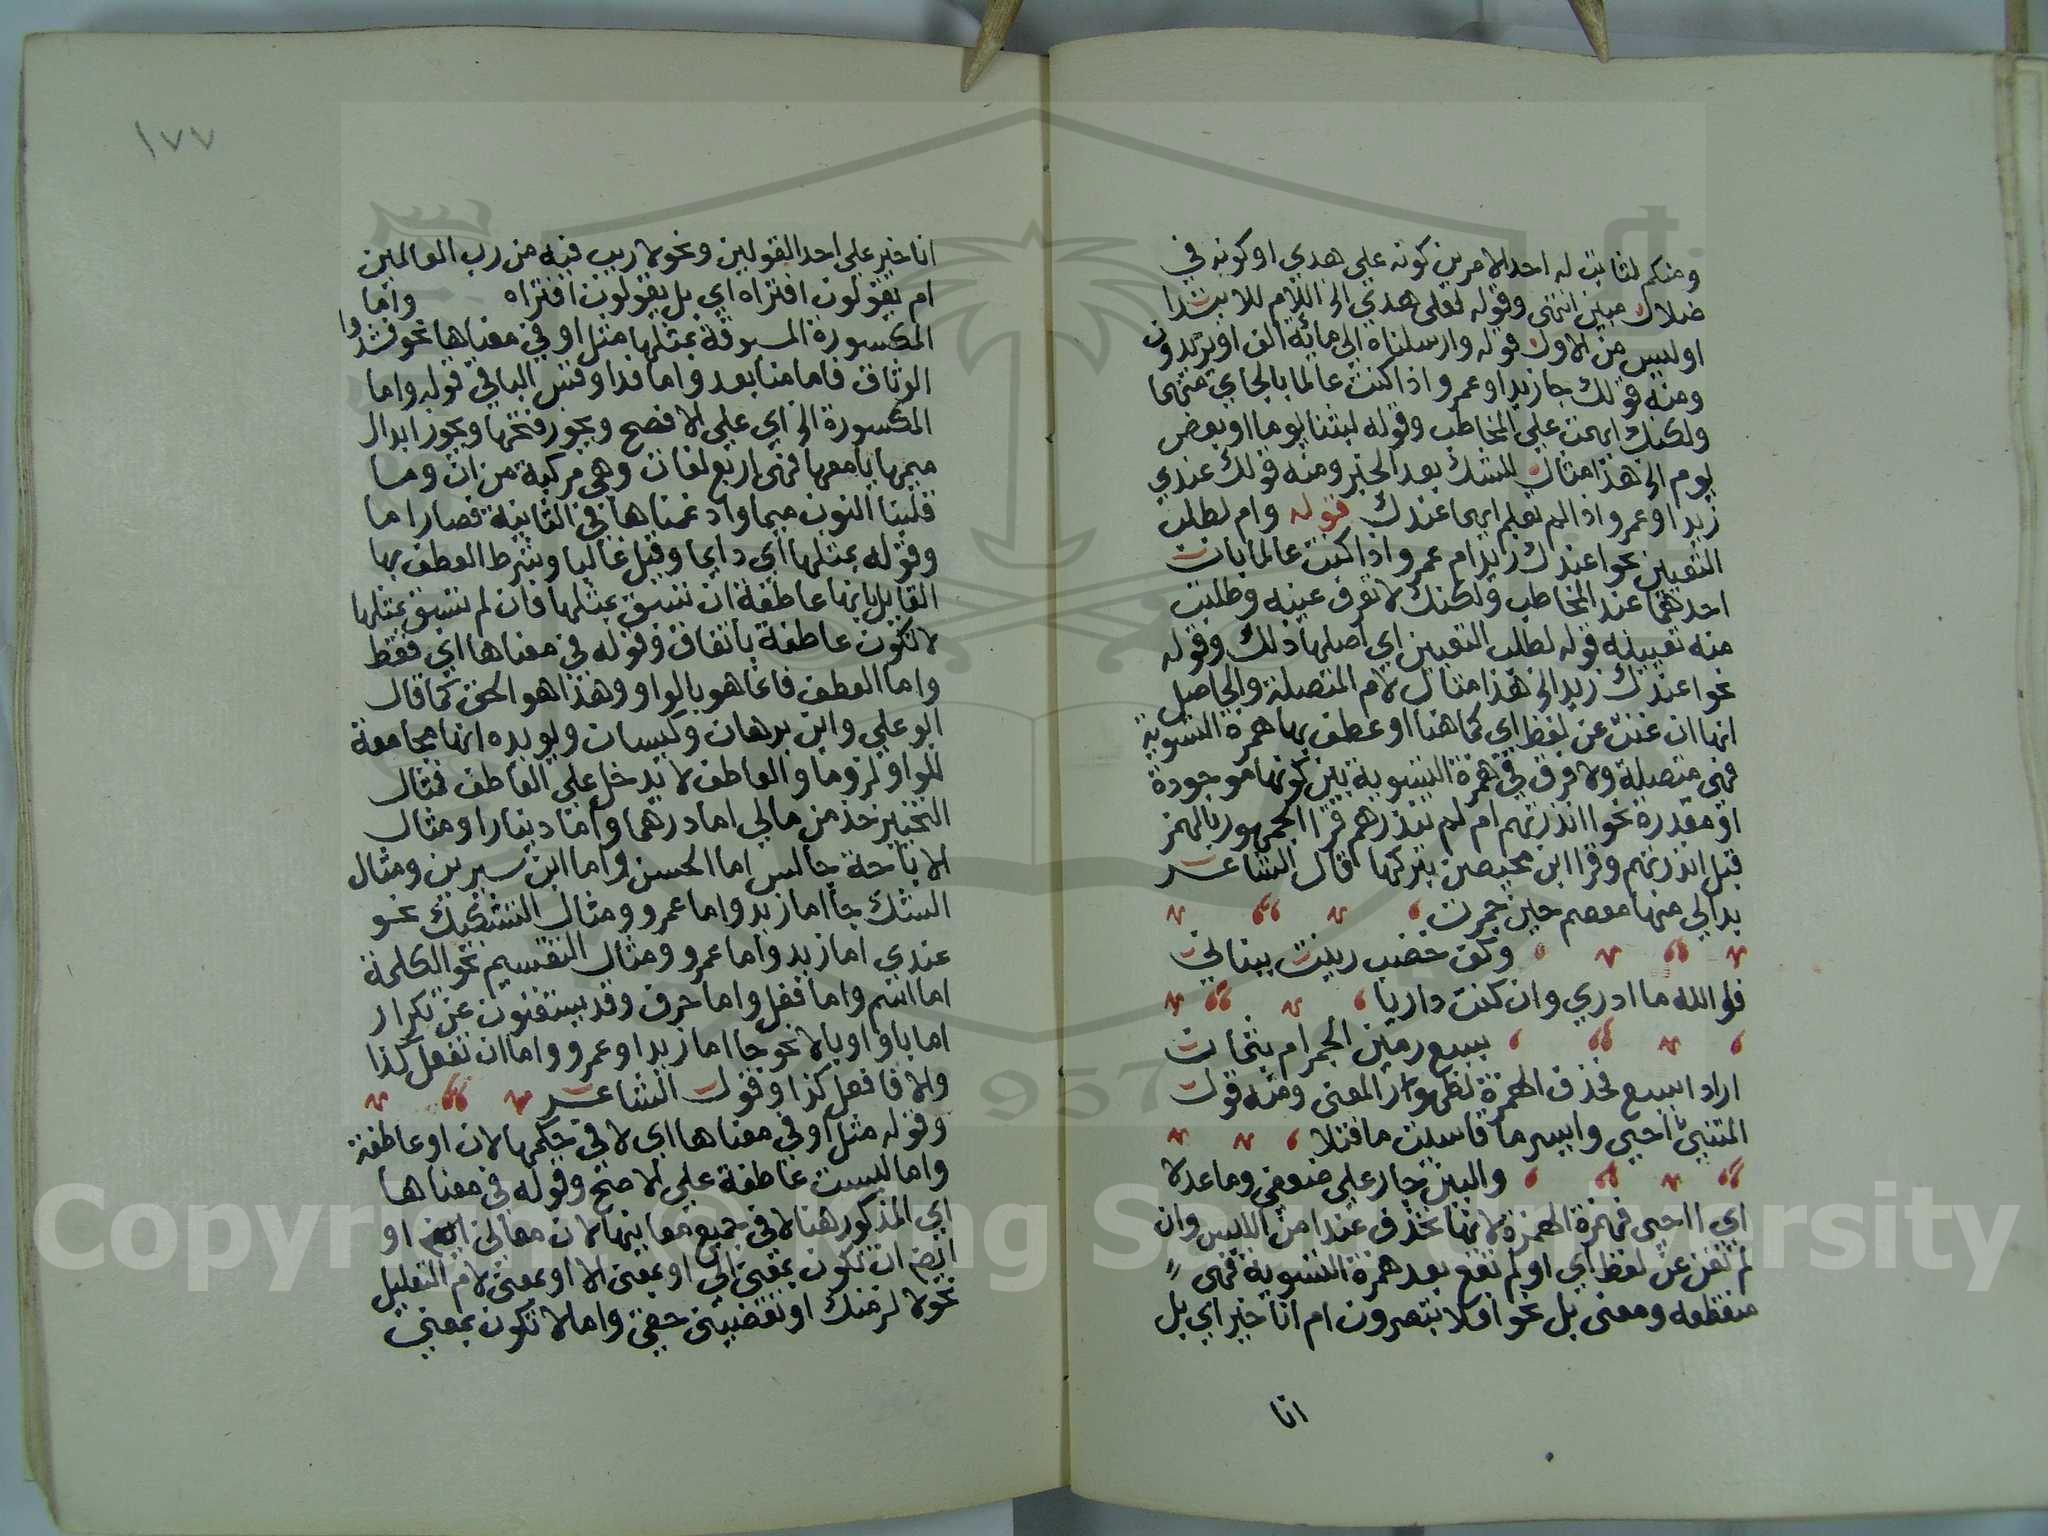 ومنكم لثابت له احد الامرين كونه علي هدي او كونه في
ضلال مبين انتهى وقوله لعلى هدي الخ اللام للابتدا
او ليس من الاول قوله وارسلناه الى مائة الف او يزيدون
ومنه قولك جا زيد او عمرو اذا كنت عالما بالجاي منهما
ولكنك ابهمت علي المخاطب وقوله لبثنا يوما او بعض
يوم الخ هذا مثال للشك بعد الخبر ومنه قولك عندي
زيد او عمرو اذا لم تعلم ايهما عندك قوله وام لطلب
التعيين نحو اعندك زيد ام عمرو اذا كنت عالما بان
احدهما عند المخاطب ولكنك لا تعرف عينه وطلبت
منه تعيينه قوله لطلب التعيين اي اصلها ذلك وقوله
نحو اعندك زيد الخ هذا مثال لام المتصلة والحاصل
انها ان غنت عن لفظ اي كما هنا او عطف بها همزة التسوية
فهى متصلة ولا فرق في همزة التسوية بين كونها موجودة
او مقدرة نحو اانذرتهم ام لم تنذرهم قرا الجمهور بالهمز
قبل انذرتهم وقرا ابن محيصن بتركها قال الشاعر
بدا لي منها معصم حين جمرت
وكف خضب زينت ببنان
فو الله ما ادري وان كنت داريا
بسبع رمين الجمر ام بثمان
اراد ابسبع فحذف الهمزة لظهور المعنى ومنه قول
المتنبي احيي وايسر ما قاسيت ما قتلا
والبين جار علي ضعفي وما عدلا
اي ااحيي فهمزة الهمزة لانها تحذف عند امن اللبس وان
لم تغن عن لفظ اي او لم تقع بعد همزة التسوية فهى
منقطعه ومعنى بل نحو افلا تبصرون ام انا خير اي بل
انا
١٧٧
انا خير علي احد القولين ونحو لا ريب فيه من رب العالمين
ام يقولون افتراه اي بل يقولون افتراه واما
المكسورة المسبوقة بمثلها مثل او في معناها نحو فشدوا
الوثاق فاما منا بعد واما فدا وقس الباقي قوله واما
المكسورة الخ اي علي الافصح ويجوز فتحها ويجوز ابدال
ميمها يا معها فهى اربع لغات وهي مركبة من ان وما
قلبنا النون ميما وادغمناها في الثانية فصار اما
وقوله بمثلها اي دايما وقيل غالبا وشرط العطف بها
القايل بانها عاطفة ان تسبق بمثلها فان لم تسبق بمثلها
لا تكون عاطفة باتفاق وقوله في معناها اي فقط
واما العطف فانما هو بالواو وهذا هو الحق كما قال
ابو علي وابن برهان وكيسان ويويده انها مجامعة
للواو لزوما والعاطف لا يدخل علي العاطف فمثال
التخيير خذ من مالي اما درهما واما دينارا ومثال
الاباحة جالس اما الحسن واما ابن سيرين ومثال
الشك جا اما زيد واما عمرو ومثال التشكيك نحو
عندي اما زيد واما عمرو ومثال التقسيم نحو الكلمة
اما اسم واما فعل واما حرف وقد يستغنون عن تكرار
اما باو او بالا نحو جا اما زيد او عمرو واما ان تفعل كذا
والا فافعل كذا وقول الشاعر
وقوله مثل او في معناها اي لا في حكمها لان او عاطفة
واما ليست عاطفة علي الاصح وقوله في معناها
اي المذكور هنا لا في جميع معانيها لان معاني او
ان تكون بمعنى الى او بمعنى الا او بمعنى لام التعليل
نحو لا لزمنك او تقضيني حقي واما لا تكون بمعني
Copyright © King Saud University
1957